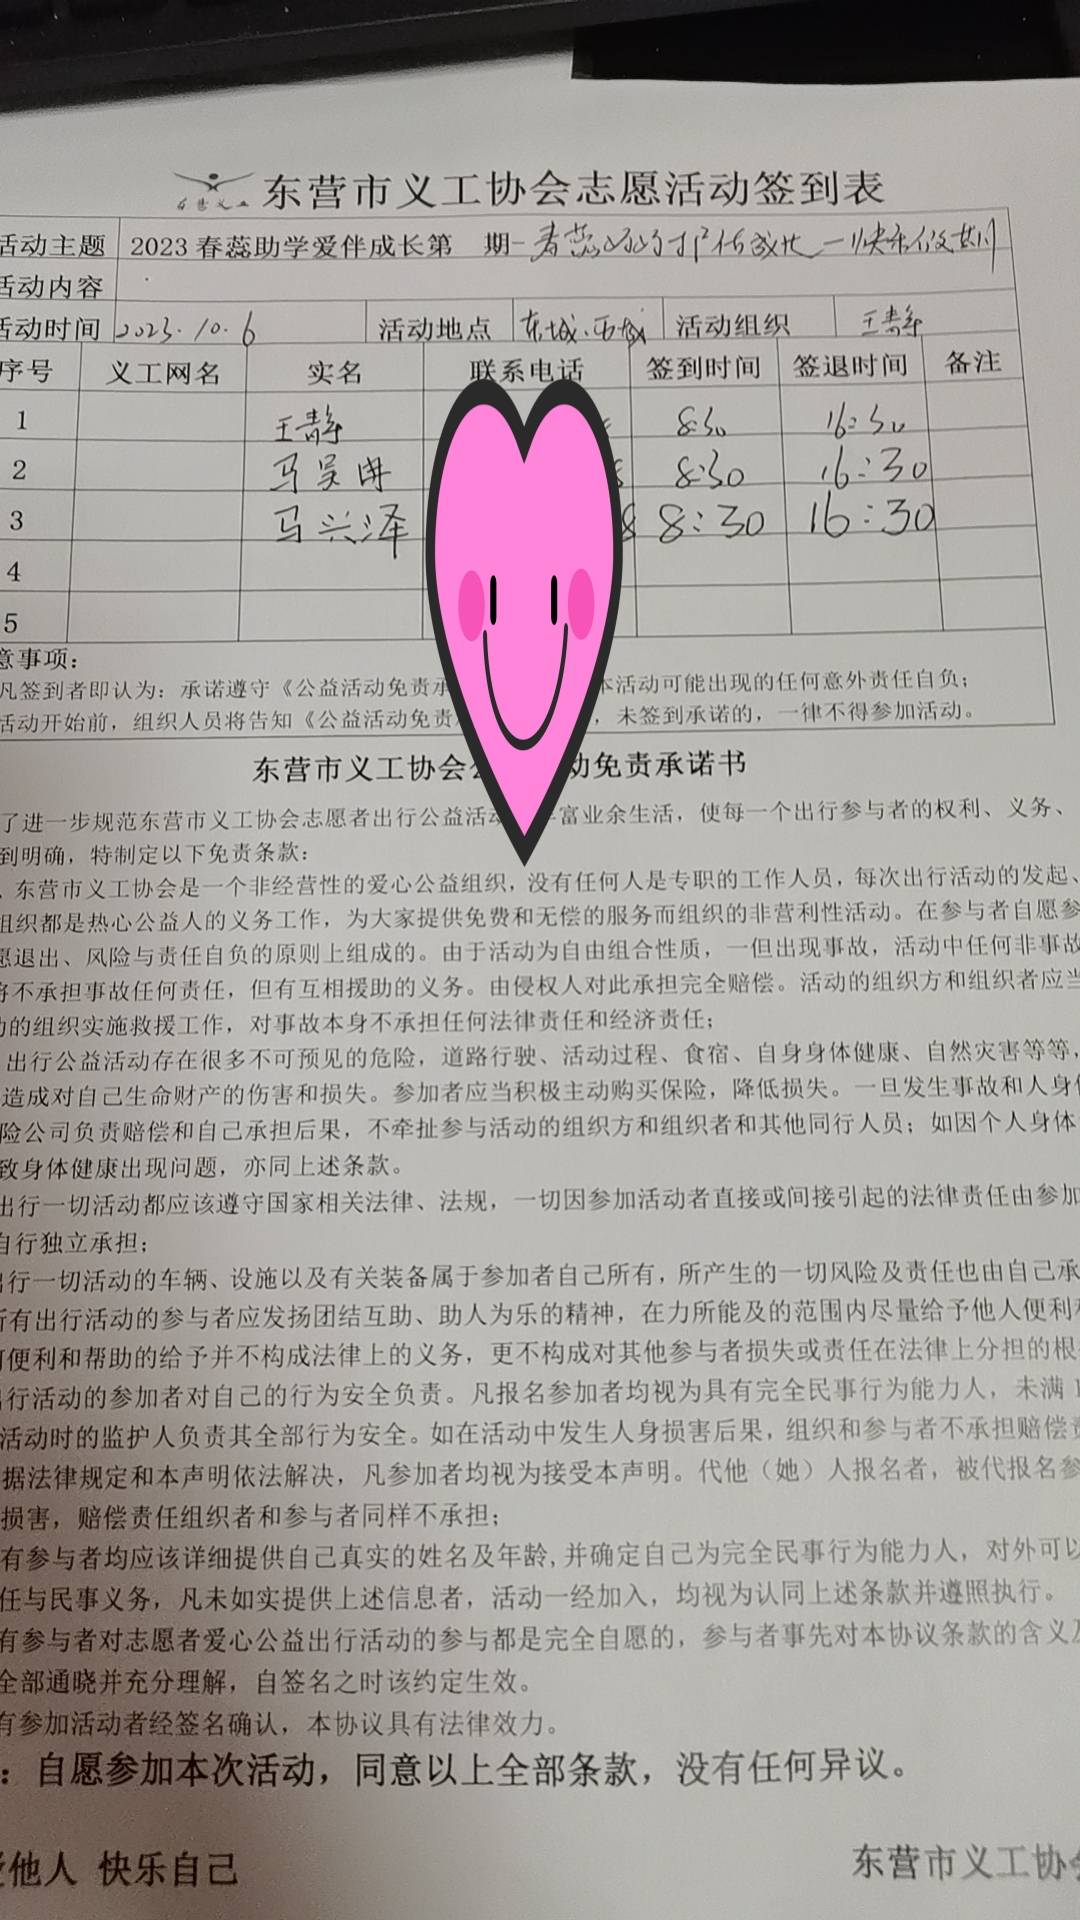 东营义工
东营市义工协会志愿活动签到表
活动主题 2023春蕊助学爱伴成长第 期-
活动内容
活动时间 2023.10.6 活动地点 东城.西城 活动组织 王青静
序号 义工网名 实名 联系电话 签到时间 签退时间 备注
1 王静 8:30 16:30
2 马昊冉 8:30 16:30
3 马兴泽 8 8:30 16:30
4
5
意事项：
凡签到者即认为：承诺遵守《公益活动免责承 本活动可能出现的任何意外责任自负；
活动开始前，组织人员将告知《公益活动免责 ，未签到承诺的，一律不得参加活动。
东营市义工协会 动免责承诺书
了进一步规范东营市义工协会志愿者出行公益活动 富业余生活，使每一个出行参与者的权利、义务、
到明确，特制定以下免责条款：
、东营市义工协会是一个非经营性的爱心公益组织，没有任何人是专职的工作人员，每次出行活动的发起、
组织都是热心公益人的义务工作，为大家提供免费和无偿的服务而组织的非营利性活动。在参与者自愿参
愿退出、风险与责任自负的原则上组成的。由于活动为自由组合性质，一但出现事故，活动中任何非事故
将不承担事故任何责任，但有互相援助的义务。由侵权人对此承担完全赔偿。活动的组织方和组织者应当
动的组织实施救援工作，对事故本身不承担任何法律责任和经济责任；
出行公益活动存在很多不可预见的危险，道路行驶、活动过程、食宿、自身身体健康、自然灾害等等，
造成对自己生命财产的伤害和损失。参加者应当积极主动购买保险，降低损失。一旦发生事故和人身
险公司负责赔偿和自己承担后果，不牵扯参与活动的组织方和组织者和其他同行人员；如因个人身体
致身体健康出现问题，亦同上述条款。
出行一切活动都应该遵守国家相关法律、法规，一切因参加活动者直接或间接引起的法律责任由参加
自行独立承担；
出行一切活动的车辆、设施以及有关装备属于参加者自己所有，所产生的一切风险及责任也由自己承
所有出行活动的参与者应发扬团结互助、助人为乐的精神，在力所能及的范围内尽量给予他人便利
何便利和帮助的给予并不构成法律上的义务，更不构成对其他参与者损失或责任在法律上分担的根
出行活动的参加者对自己的行为安全负责。凡报名参加者均视为具有完全民事行为能力人，未满1
活动时的监护人负责其全部行为安全。如在活动中发生人身损害后果，组织和参与者不承担赔偿责
据法律规定和本声明依法解决，凡参加者均视为接受本声明。代他（她）人报名者，被代报名参
损害，赔偿责任组织者和参与者同样不承担；
有参与者均应该详细提供自己真实的姓名及年龄，并确定自己为完全民事行为能力人，对外可以
任与民事义务，凡未如实提供上述信息者，活动一经加入，均视为认同上述条款并遵照执行。
有参与者对志愿者爱心公益出行活动的参与都是完全自愿的，参与者事先对本协议条款的含义及
全部通晓并充分理解，自签名之时该约定生效。
有参加活动者经签名确认，本协议具有法律效力。
：自愿参加本次活动，同意以上全部条款，没有任何异议。
爱他人 快乐自己
东营市义工协会